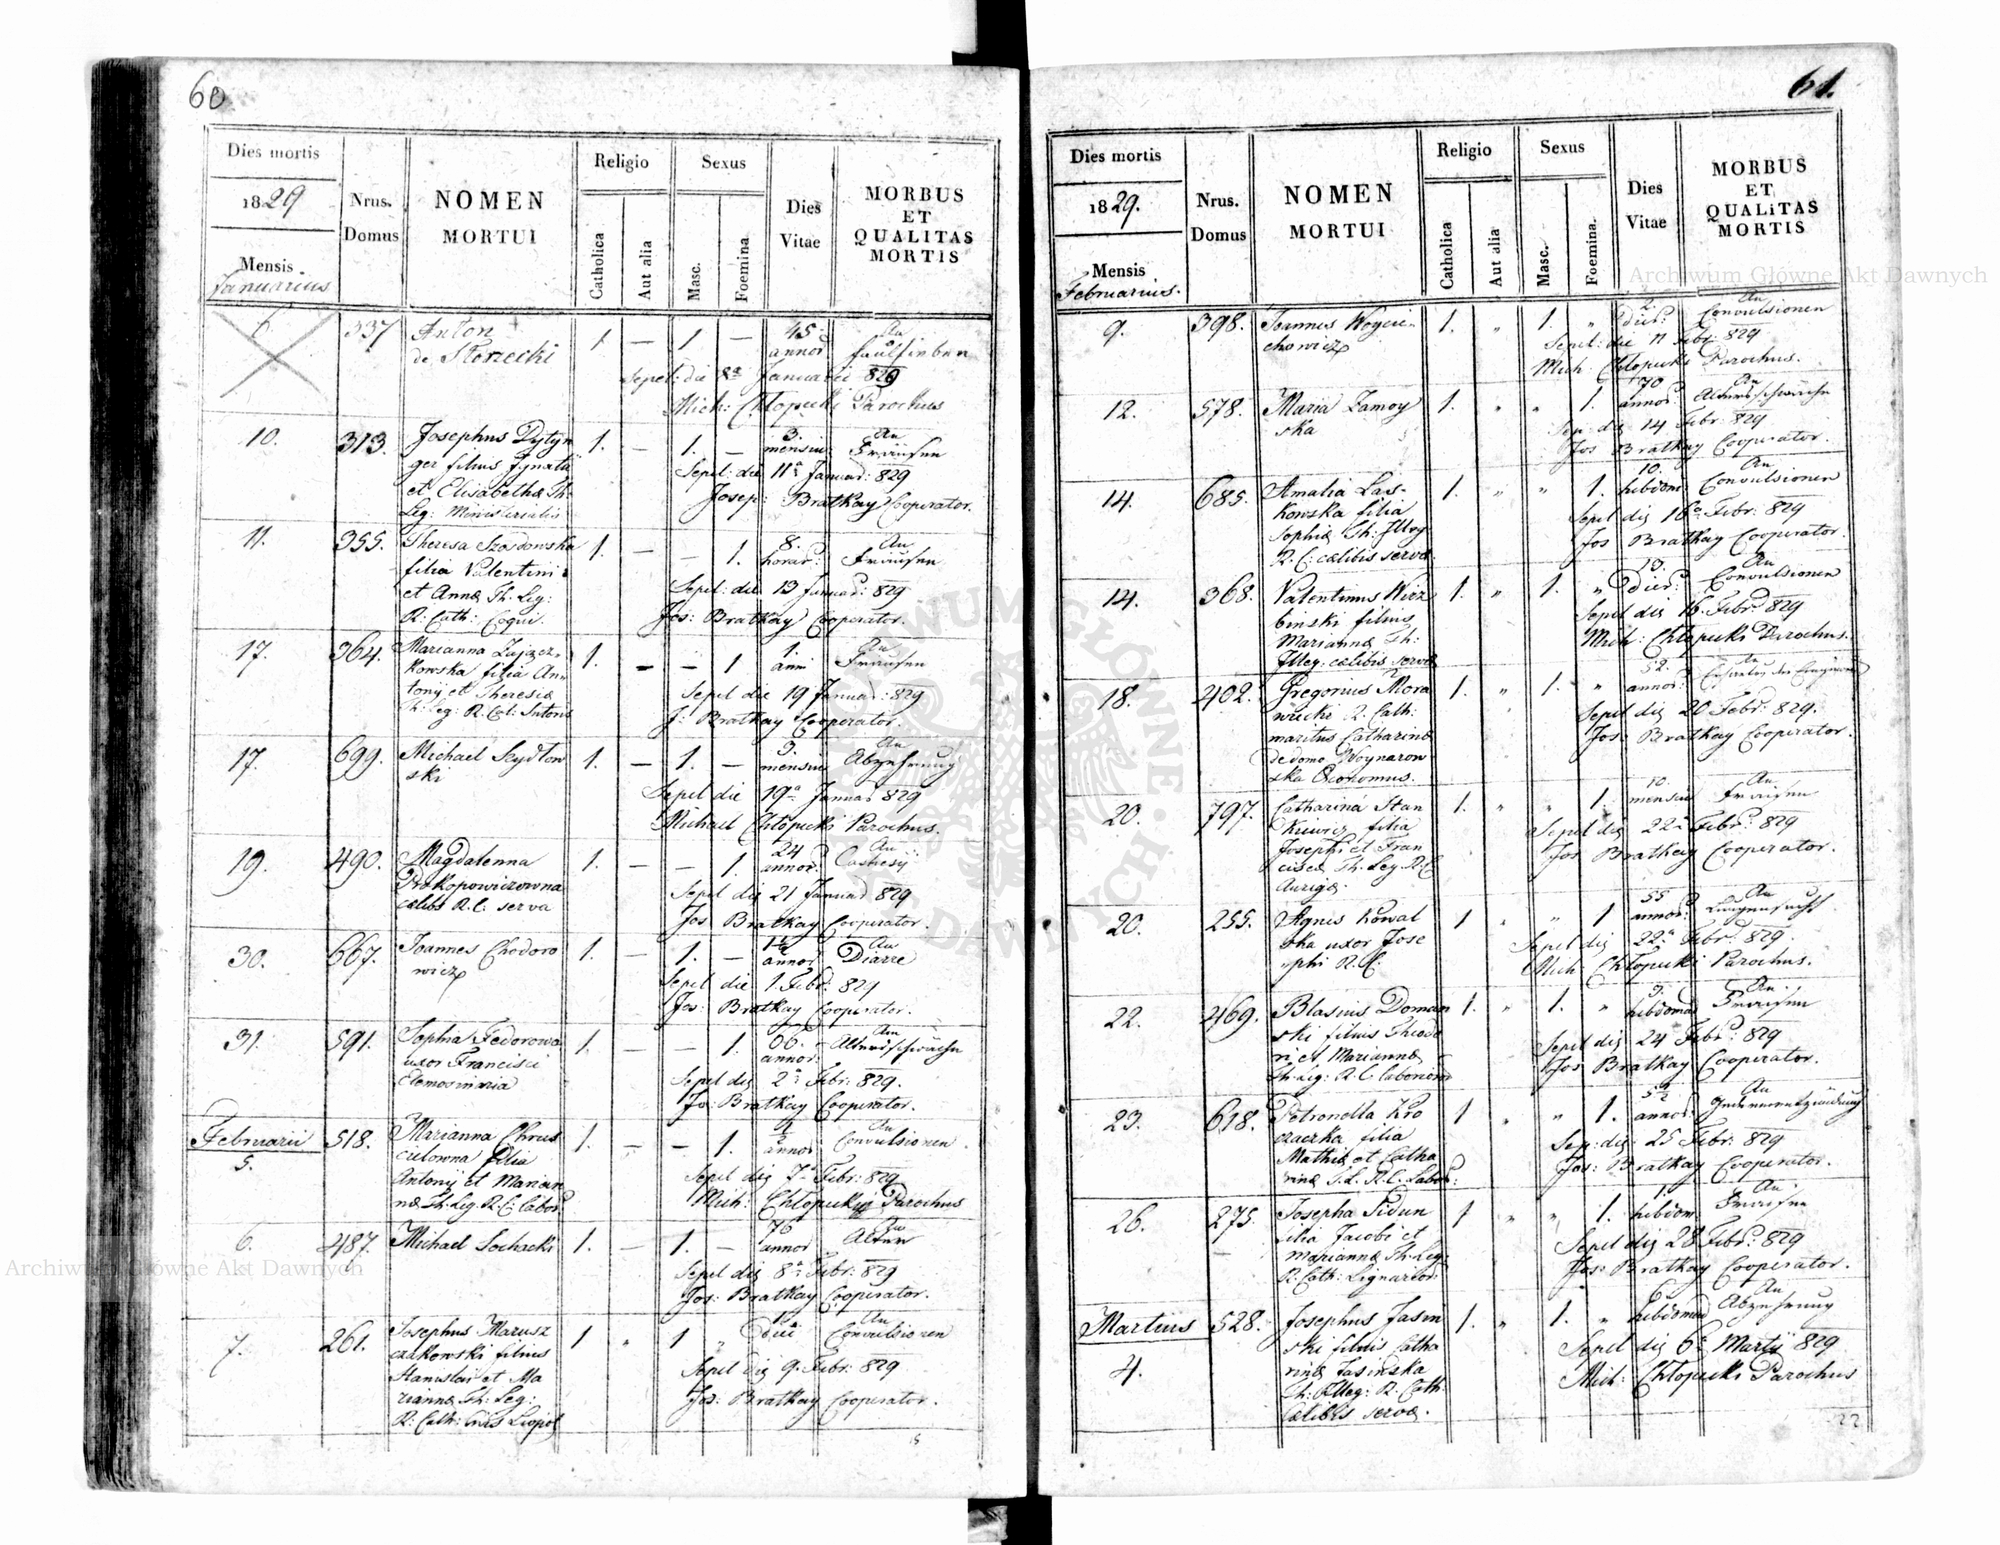 60
Dies mortis
1829
Mensis
Januarius
Nrus.
Domus
NOMEN
MORTUI
Religio
Catholica
Aut alia
Sexus
Masc.
Foemina
Dies
Vitae
MORBUS
ET
QUALITAS
MORTIS
6. 337 Anton 1 — 1 — 45. An
de annor. Faulfieber
Sepel: die 8a Januarii 829
Mich: Chłopicki Parochus
10. 313. Josephus 1. — 1. — 3. An
ger filius Ignatii mensiu Fraisen
et Elisabethæ Th. Sepel: die 11a Januar: 829
Leg: Ministerialis Josep: Bratkay Cooperator.
11. 355. Theresa Szadowska 1. — — 1. 8. An
filia Valentini horar: Fraisen
et Annæ Th. Leg: Sepel: die 13 Januar: 829
R. Cath: Coqui. Jos: Bratkay Cooperator.
17. 364. Marianna Zającz- 1. — — 1 1. An
kowska filia An- anni Fraisen
tonij et Theresiæ Sepel die 19 Januar: 829
Th. Leg: R. Cat: Sutoris J: Bratkay Cooperator.
17. 699. Michael Szydłow 1. — 1. — 9. An
ski mensiu Abzehrung
Sepel die 19a Januar 829
Michael Chłopicki Parochus.
19. 490. Magdalenna 1. — — 1. 24 An
Prokopowiczowna annor.
cælibs R. C. serva Sepel die 21 Januar 829
Jos Bratkay Cooperator.
30. 667. Joannes Chodoro 1. — 1. — An
wicz annor Diarre
Sepel die 1. Febr: 829
Jos: Bratkay Cooperator.
31. 591. Sophia Fedorowa 1. — — 1. 66. An
uxor Francisci annor. Altersschwäche
Elemosinaria Sepel die 2a Febr: 829.
Jos: Bratkay Cooperator.
Februarii 518. Marianna Chrus 1. — — 1. An
5. cielowna filia annor Convulsionen.
Antonij et Marian Sepel die 7a Febr: 829
næ Th. Leg. R. C. Labor. Mich: Chłopicki Parochus
6. 487. Michael Sochacki 1. — 1. — 76 An
annor Alter
Sepel die 8a Febr: 829
Jos: Bratkay Cooperator.
7. 261. Josephus Marusz 1 " 1 " An
czakowski filius dier Convulsionen
Stanislai et Ma Sepel die 9. Febr: 829
riannæ Th. Leg: Jos: Bratkay Cooperator.
R. Cath:
15
61.
Dies mortis
1829.
Mensis
Februarius.
Nrus.
Domus
NOMEN
MORTUI
Religio
Catholica
Aut alia
Sexus
Masc.
Foemina.
Dies
Vitae
MORBUS
ET
QUALiTAS
MORTIS
9. 398. Joannes Woycie- 1. " 1. " 2. An
chowicz dier: Convulsionen
Sepel: die 11 Febr: 829
Mich: Chłopicki Parochus.
12. 578. Maria Zamoy 1. " " 1. 70 An
ska annor. Altersschwäche
Sep: die 14 Febr: 829
Jos Bratkay Cooperator.
14. 685. Amalia Las- 1. " " 1. 10. An
kowska filia hebdom Convulsionen
Sophiæ Th: Illeg Sepel die 16a Febr: 829
R. C: cælibis servæ Jos Bratkay Cooperator.
14. 368. Valentinus Wierz 1. " 1. " 13. An
binski filius dier: Convulsionen
Mariannæ Th: Sepel die 16. Febr: 829
Illeg: cælibis servæ Mich: Chłopicki Parochus.
18. 402. Gregorius Mora 1. " 1. " 52. An
wiecki R. Cath: annor:
maritus Catharinæ Sepel die 20 Febr: 829.
de domo Woynarow Jos: Bratkay Cooperator.
ska Œconomus.
20. 797. Catharina Stan 1. " " 1. 10 An
kiewicz filia mensiu Fraisen
Josephi et Fran Sepel die 22a Febr: 829
ciscæ Th. Leg R. C. Jos Bratkay Cooperator.
Aurigæ.
20. 255. Agnes Kowal 1 " " 1 55 An
ska uxor Jose annor: Lungensucht
phi R. C. Sepel die 22a Febr: 829.
Mich: Chłopicki Parochus.
22. 469. Blasius Doman 1. " 1. " 9. An
ski filius Theodo hebdomad Fraisen
ri et Mariannæ Sepel die 24 Febr: 829
Th. Leg: R. C. Laboriosi Jos Bratkay Cooperator.
23. 618. Petronella Kro 1 " " 1. An
czaczka filia annor
Mathiæ et Catha Sep: die 25 Febr: 829
rinæ T. L. R. C. Labor: Jos: Bratkay Cooperator.
26. 275. Josepha Sidun 1 " " 1. 1. An
filia Jacobi et hebdom. Fraisen
Mariannæ Th. Leg: Sepel die 28 Febr: 829
R. Cath: Lignarior: Jos: Bratkay Cooperator.
Martius 528. Josephus Jasin 1. " 1. " 6 An
4. ski filius Catha hebdomad Abzehrung
rinæ Jasinska Sepel die 6a Martij 829
Th: Illeg: R. Cath: Mich: Chłopicki Parochus
Cælibis servæ.
22
Archiwum Główne Akt Dawnych
Archiwum Główne Akt Dawnych
ARCHIWUM GŁÓWNE AKT DAWNYCH